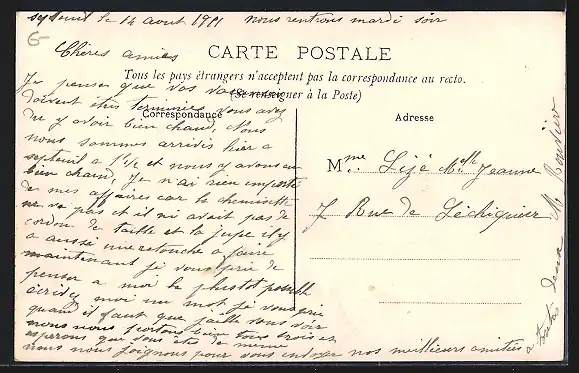 septeuil le 14 aout 1911 nous rentrons mardi soir
Chères amies
CARTE POSTALE
Tous les pays étrangers n'acceptent pas la correspondance au recto.
(Se renseigner à la Poste)
Correspondance
Adresse
Je pense que vos vacances
doivent êtres terminées vous avez
du y avoir bien chaud, Nous
nous sommes arrivés hier a
septeuil a 1h½ et nous y avons eu
bien chaud, Je n'ai rien emporté
de mes affaires car la chemisette
ne va pas et il ni avait pas de
cordon de taille et la jupe il y
a aussi une retouche a faire
maintenant je vous prie de
penser a moi le plustot possible
écrivez moi un mot je vous prie
quand il faut que j'aille vous voir
nous nous portons bien tous trois et
esperons que vous êtes de même
nous nous joignons pour vous envoyer nos meilleurs amitiés
a toutes deux M
Mme Lizé Melle Jeanne
7 Rue de Léchiquier